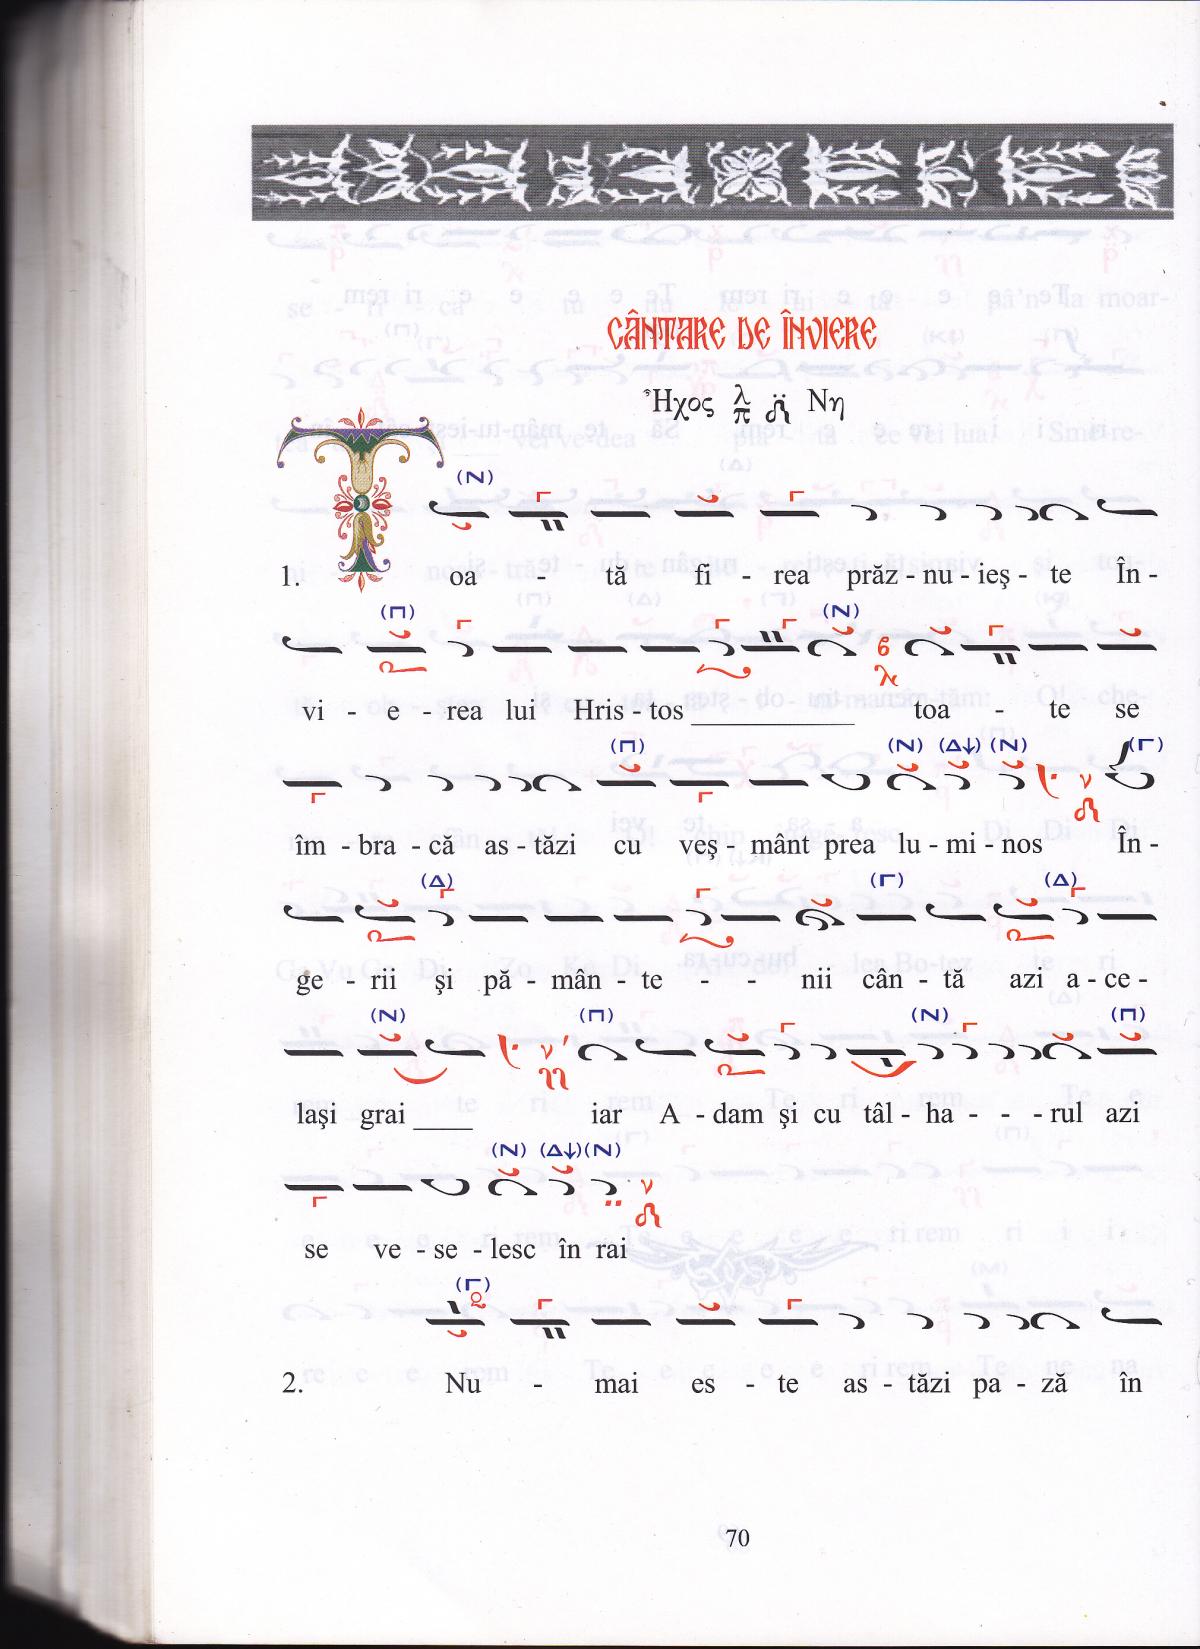 CÂNTARE DE ÎNVIERE
Ἦχος λ π Νη
(N)
1. Toa - tă fi - rea prăz - nu - ieş - te În -
(Π) (N)
vi - e - rea lui Hris - tos ____________ toa - te se
(Π) (N) (Δ↓) (N) (Γ)
îm - bra - că as - tăzi cu veş - mânt prea lu - mi - nos În -
(Δ) (Γ) (Δ)
ge - rii şi pă - mân - te - - nii cân - tă azi a - ce -
(N) (Π) (N) (Π)
laşi grai ____ iar A - dam şi cu tâl - ha - - - rul azi
(N) (Δ↓) (N)
se ve - se - lesc în rai
(Γ)
2. Nu - mai es - te as - tăzi pa - ză în
70